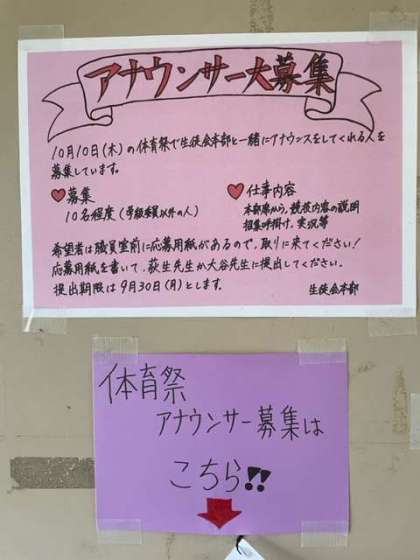 アナウンサー大募集
10月10日(木)の体育祭で生徒会本部と一緒にアナウンスをしてくれる人を
募集しています。
♥募集
10名程度(学級委員以外の人)
♥仕事内容
本部席から、競技内容の説明
招集呼掛け、実況等
希望者は職員室前に応募用紙があるので、取りに来てください!
応募用紙を書いて、荻生先生か大谷先生に提出してください。
提出期限は9月30日(月)とします。
生徒会本部
体育祭
アナウンサー募集は
こちら!!